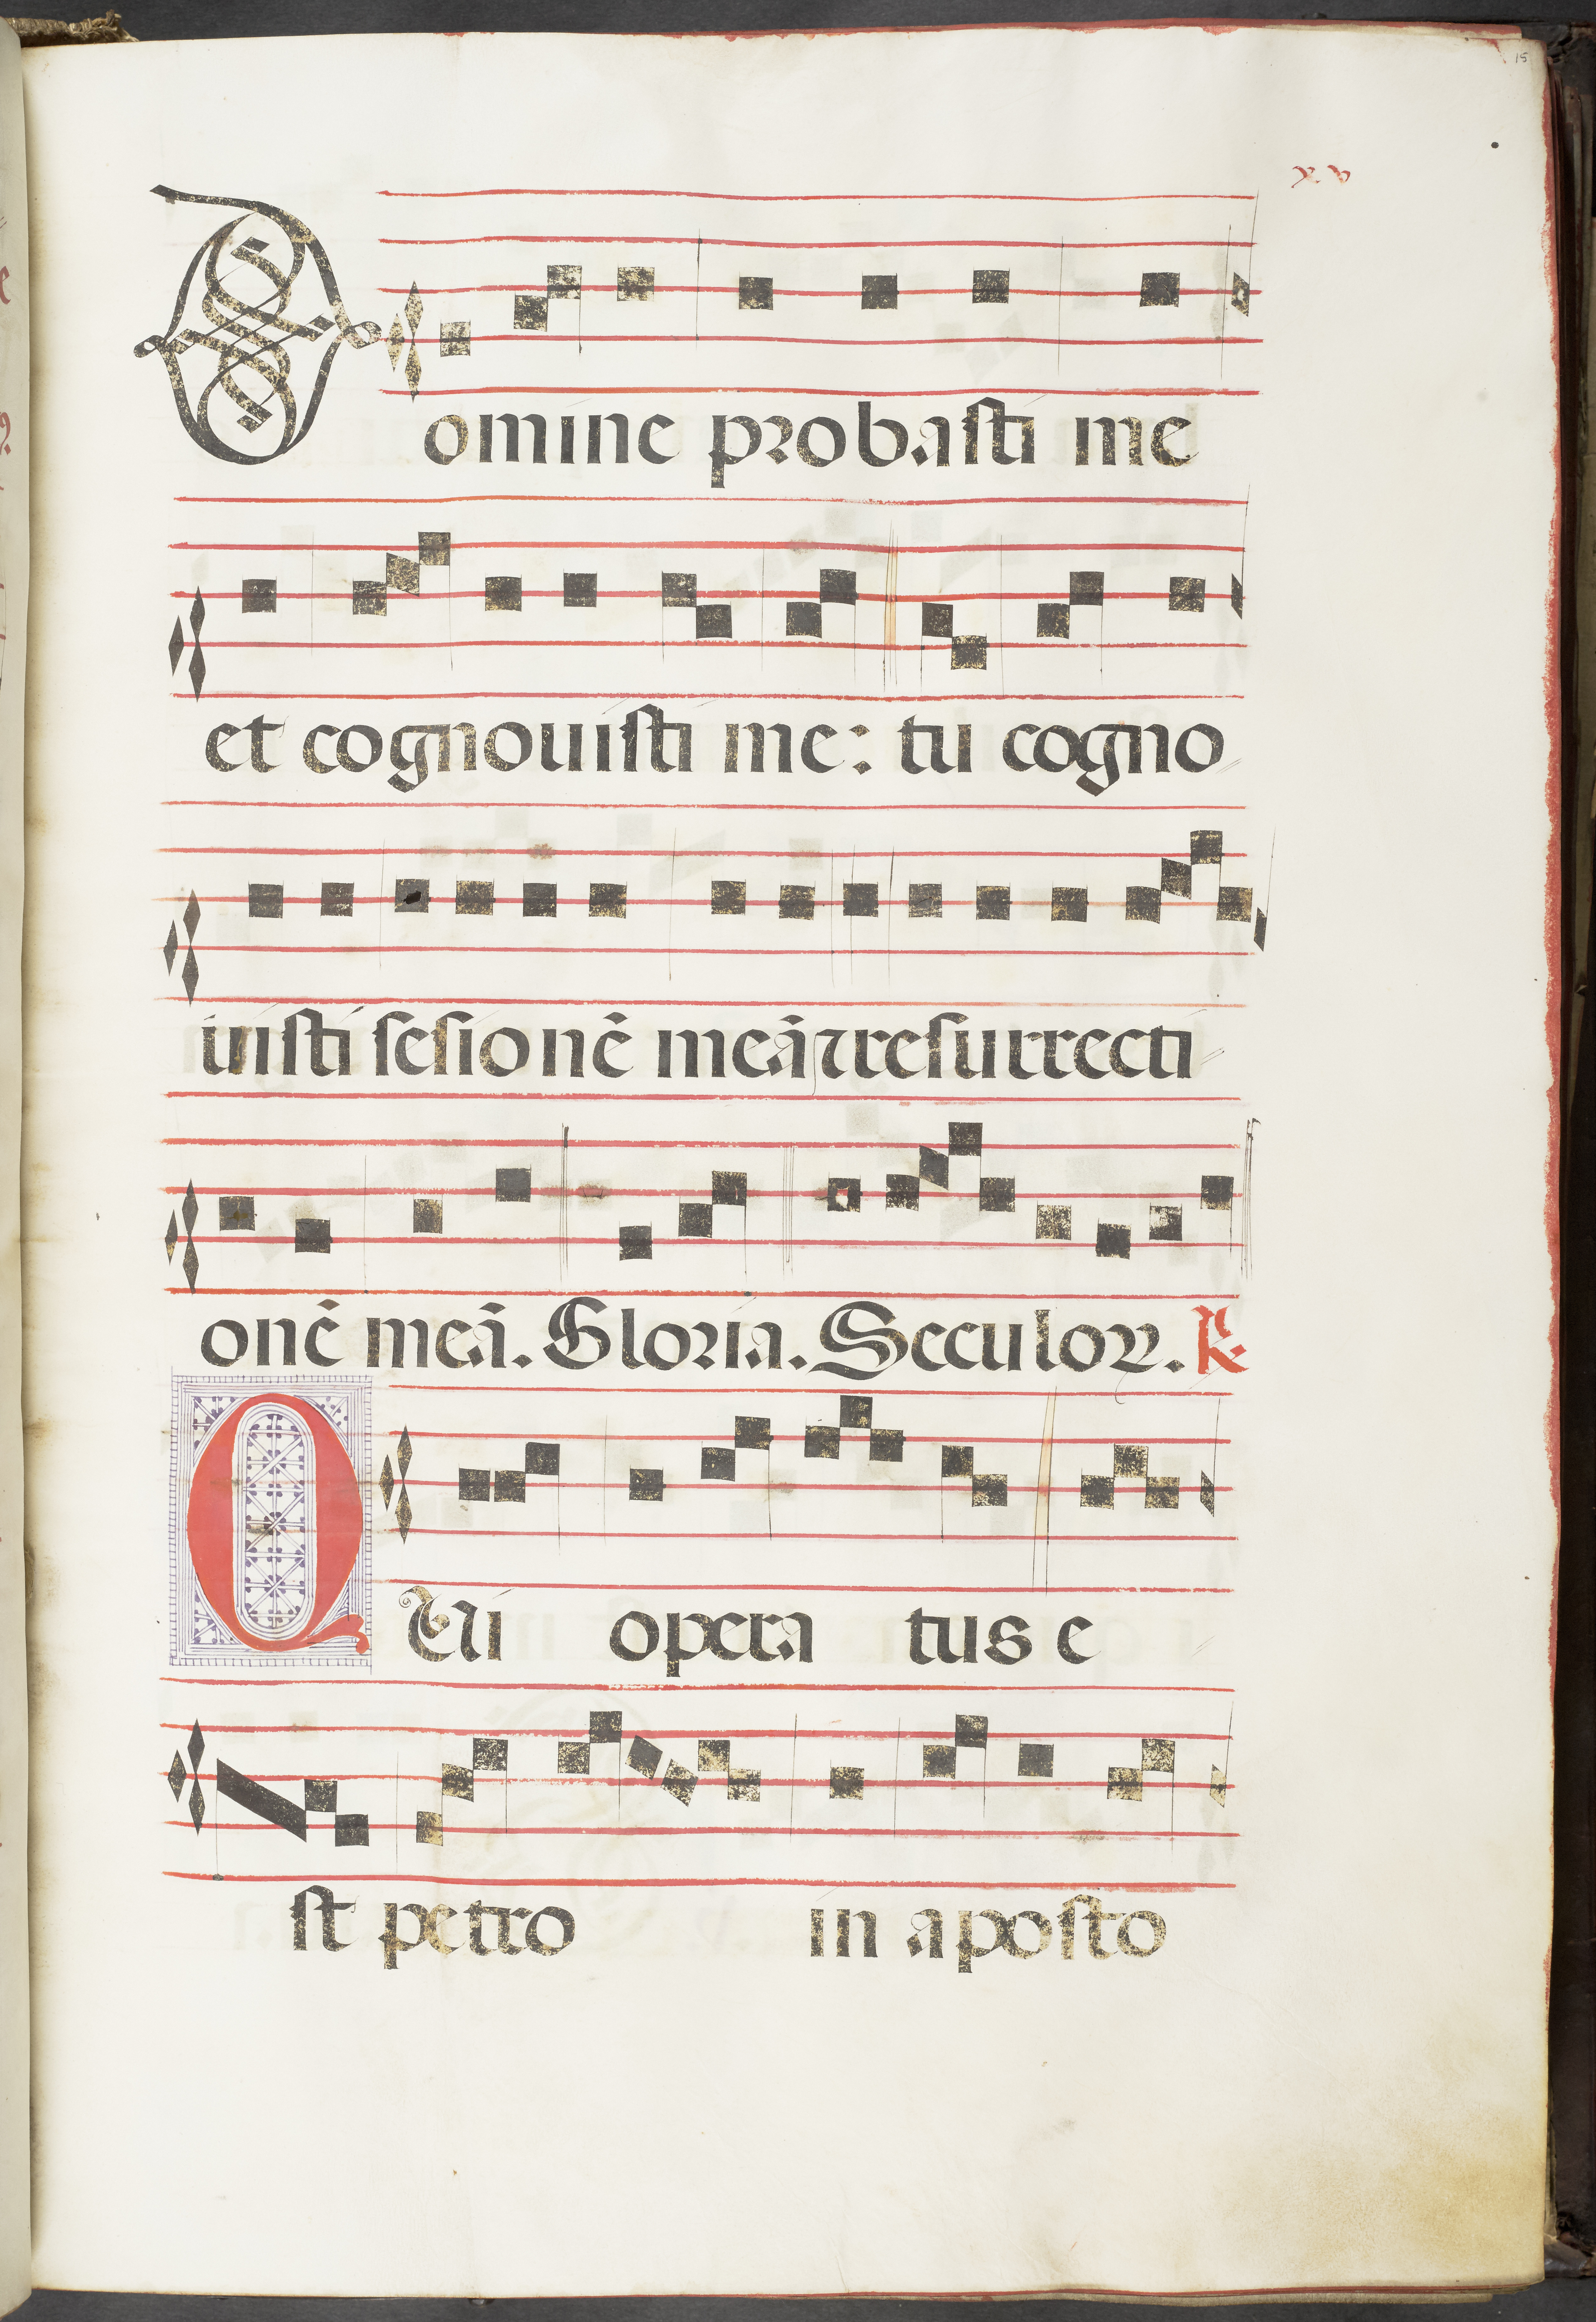 15
xv
Domine probasti me
et cognouisti me: tu cogno
uisti sesionē meā ⁊ resurrecti
onē meā. Gloria. Seculoꝝ. R
QUi opera tus e
st petro in aposto